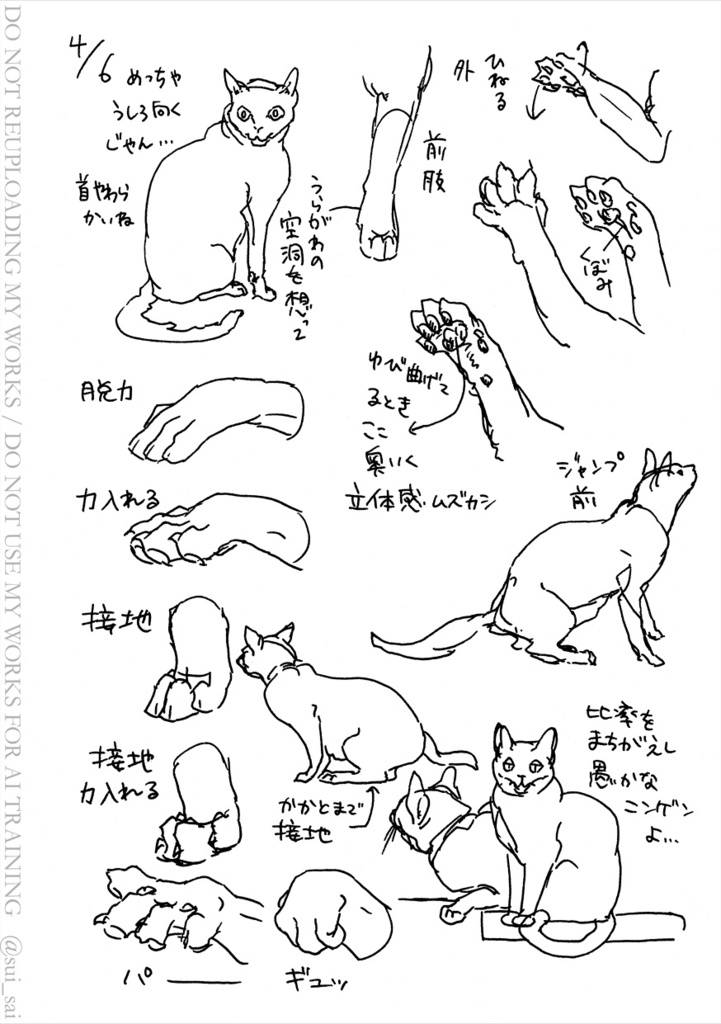 4/6
めっちゃ
うしろ向く
じゃん…
首やわら
かいね
うらがわの
空洞を想って
前肢
外
ひねる
くぼみ
ゆび曲げて
るとき
ここ
奥いく
立体感・ムズカシ
脱力
力入れる
接地
接地
力入れる
ジャンプ
前
かかとまで
接地
比率を
まちがえし
愚かな
ニンゲン
よ…
パー
ギュッ
DO NOT REUPLOADING MY WORKS / DO NOT USE MY WORKS FOR AI TRAINING @sui_sai